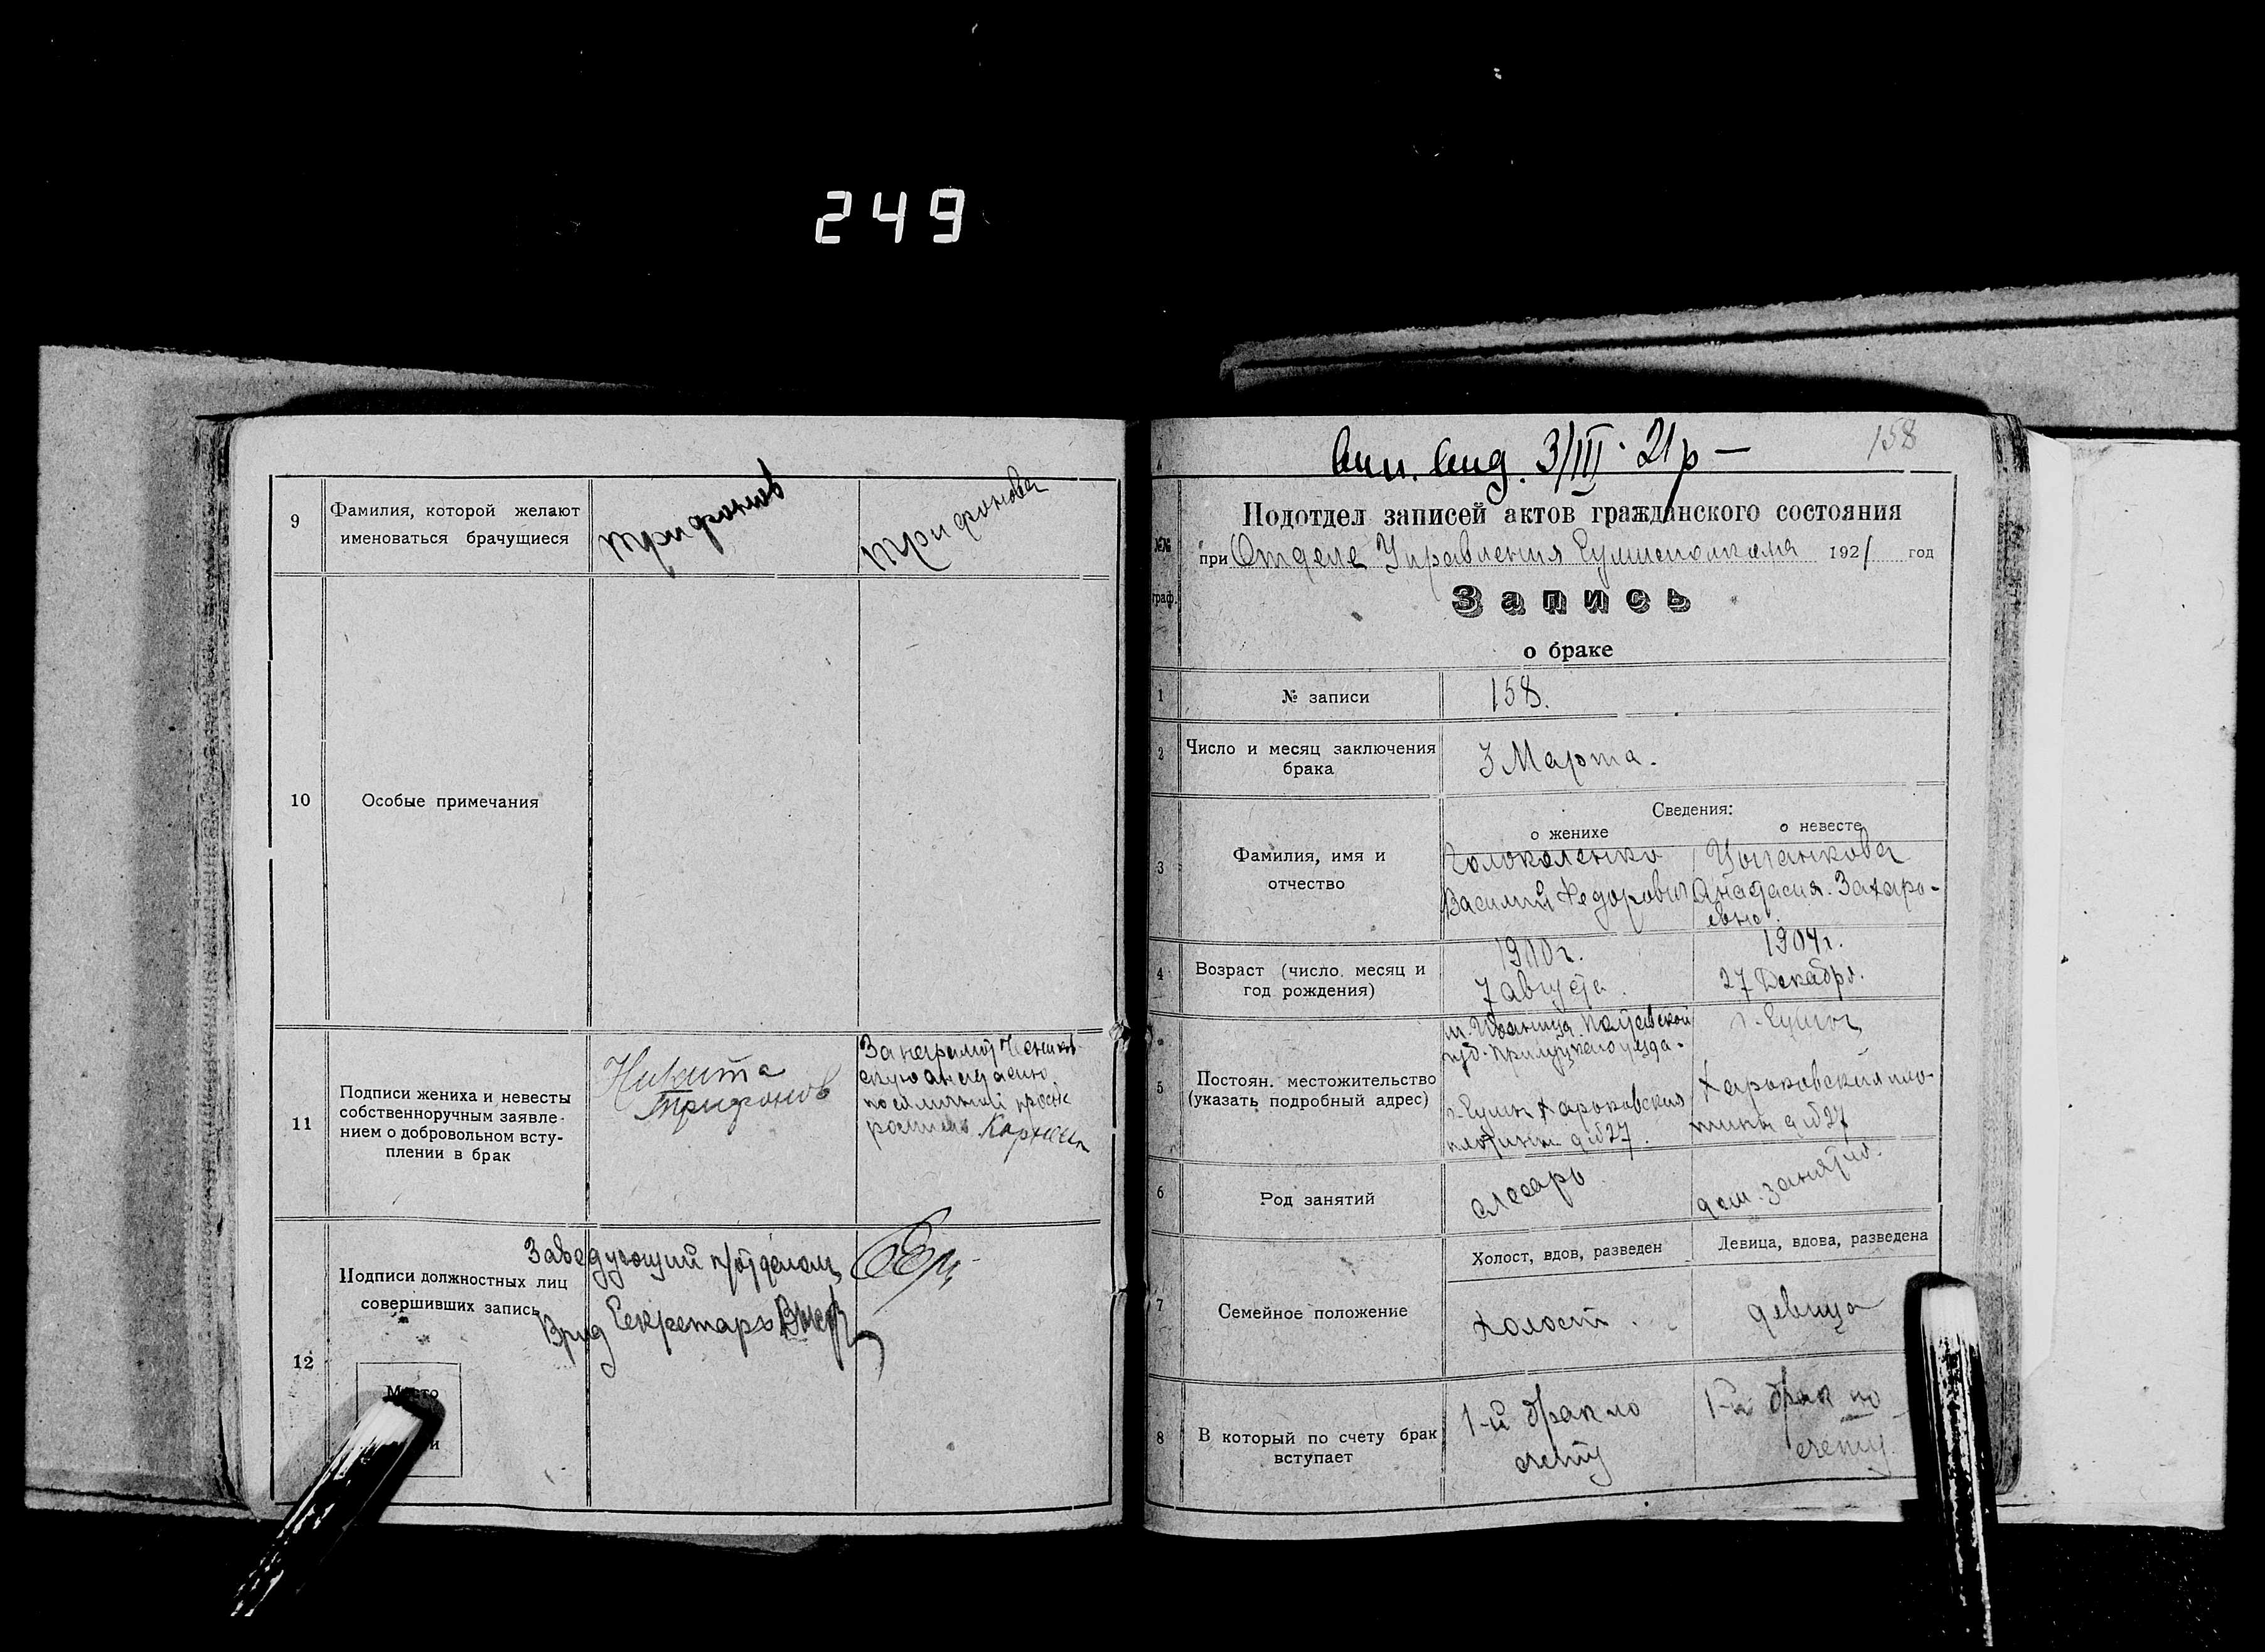 249
9
Фамилия, которой желают
именоваться брачущиеся
Трифонов
Трифонова
10
Особые примечания
11
Подписи жениха и невесты
собственноручным заявле-
нием о добровольном всту-
плении в брак
Никита
Трифонов
За неграмот
12
Подписи должностных лиц
совершивших запись
Заведующий п/отделом
Врид Секретаря
158
3/III 21 р —
№№
граф.
Подотдел записей актов гражданского состояния
при Отделе Управления 1921 год
Запись
о браке
1
№ записи
158.
2
Число и месяц заключения
брака
3 Марта.
Сведения:
о женихе
о невесте
3
Фамилия, имя и
отчество
Голоколенко
Василий Федорович
Анастасия Захаро-
евна.
4
Возраст (число, месяц и
год рождения)
1900 г.
7 августа.
1904 г.
27 Декабря.
5
Постоян. местожительство
(указать подробный адрес)
м. Полтавской
губ. Прилуцкого уезда.
г. Сумы Харьковская
д № 27.
г. Сумы
Харьковская пло-
тина д № 27
6
Род занятий
слесарь
дом. занятия.
7
Семейное положение
Холост, вдов, разведен
Девица, вдова, разведена
холост.
девица
8
В который по счету брак
вступает
1-й брак по
счету
1-й брак по
счету.